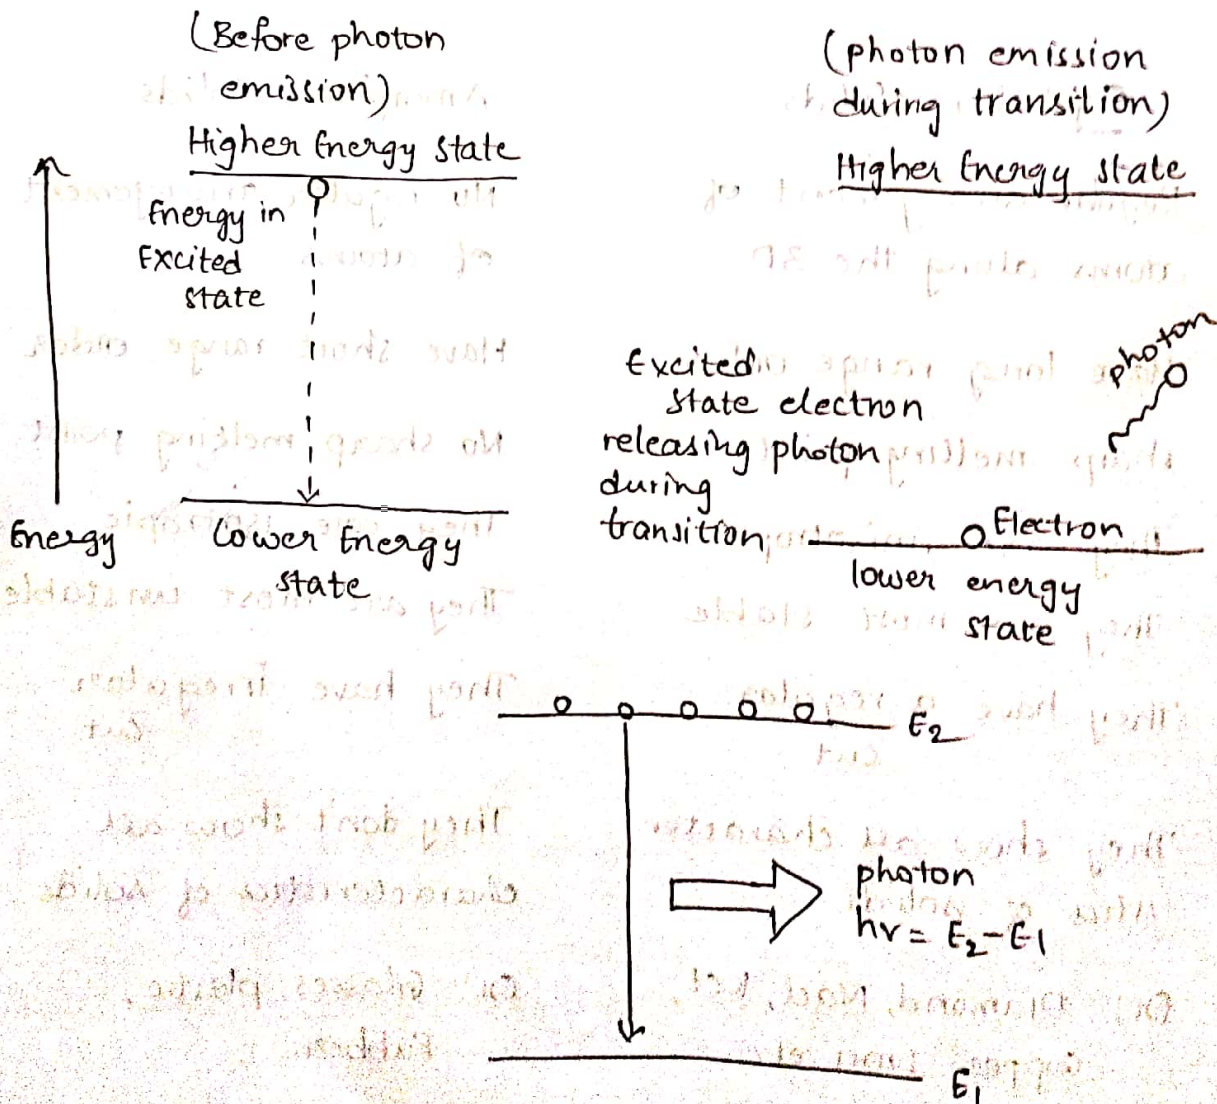 (Before photon
emission)
Higher Energy state
Energy in
Excited
state
Energy
Lower Energy
state
(photon emission
during transition)
Higher Energy state
Excited
state electron
releasing photon
during
transition
photon
Electron
lower energy
state
E₂
photon
hν = E₂-E₁
E₁